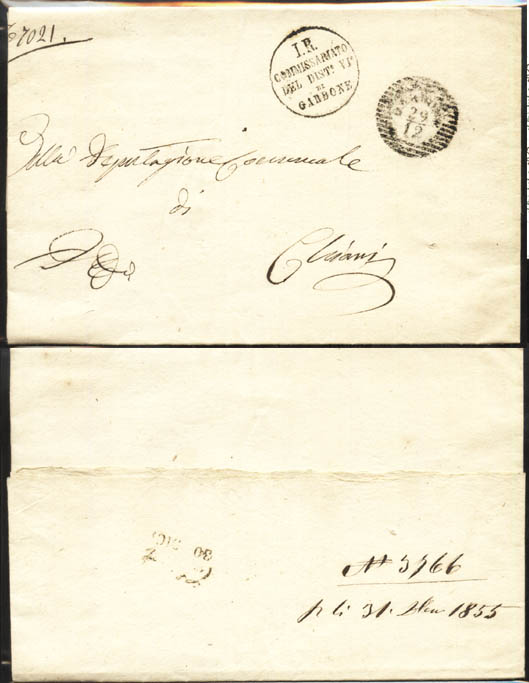 7021.
I. R.
COMMISSARIATO
DEL DIST.º VIº
DI
GARDONE
29
12
Alla Deputazione Comunale
di
Nº 3766
p li 31. Xbre 1855
30